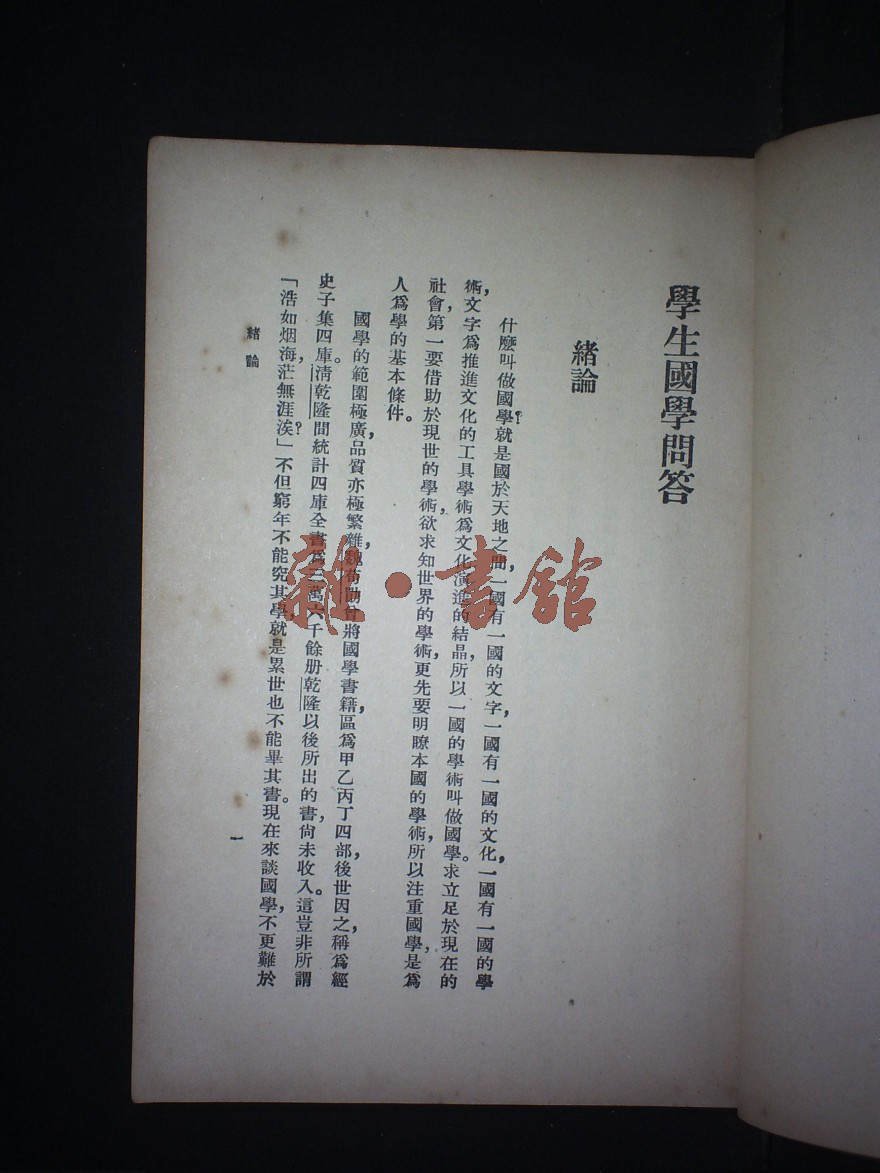 學生國學問答
緒論
什麼叫做國學？就是國於天地之間，一國有一國的文字，一國有一國的文化，一國有一國的學
術，文字爲推進文化的工具，學術爲文化演進的結晶，所以一國的學術叫做國學。求立足於現在的
社會，第一要借助於現世的學術，欲求知世界的學術，更先要明瞭本國的學術，所以注重國學，是爲
人爲學的基本條件。
國學的範圍極廣，品質亦極繁雜，魏荀勖曾將國學書籍，區爲甲乙丙丁四部，後世因之，稱爲經
史子集四庫。清乾隆間統計四庫全書爲三萬六千餘册，乾隆以後所出的書，尙未收入。這豈非所謂
「浩如烟海，茫無涯涘？」不但窮年不能究其學，就是累世也不能畢其書。現在來談國學，不更難於
緒論
一
雜·書館